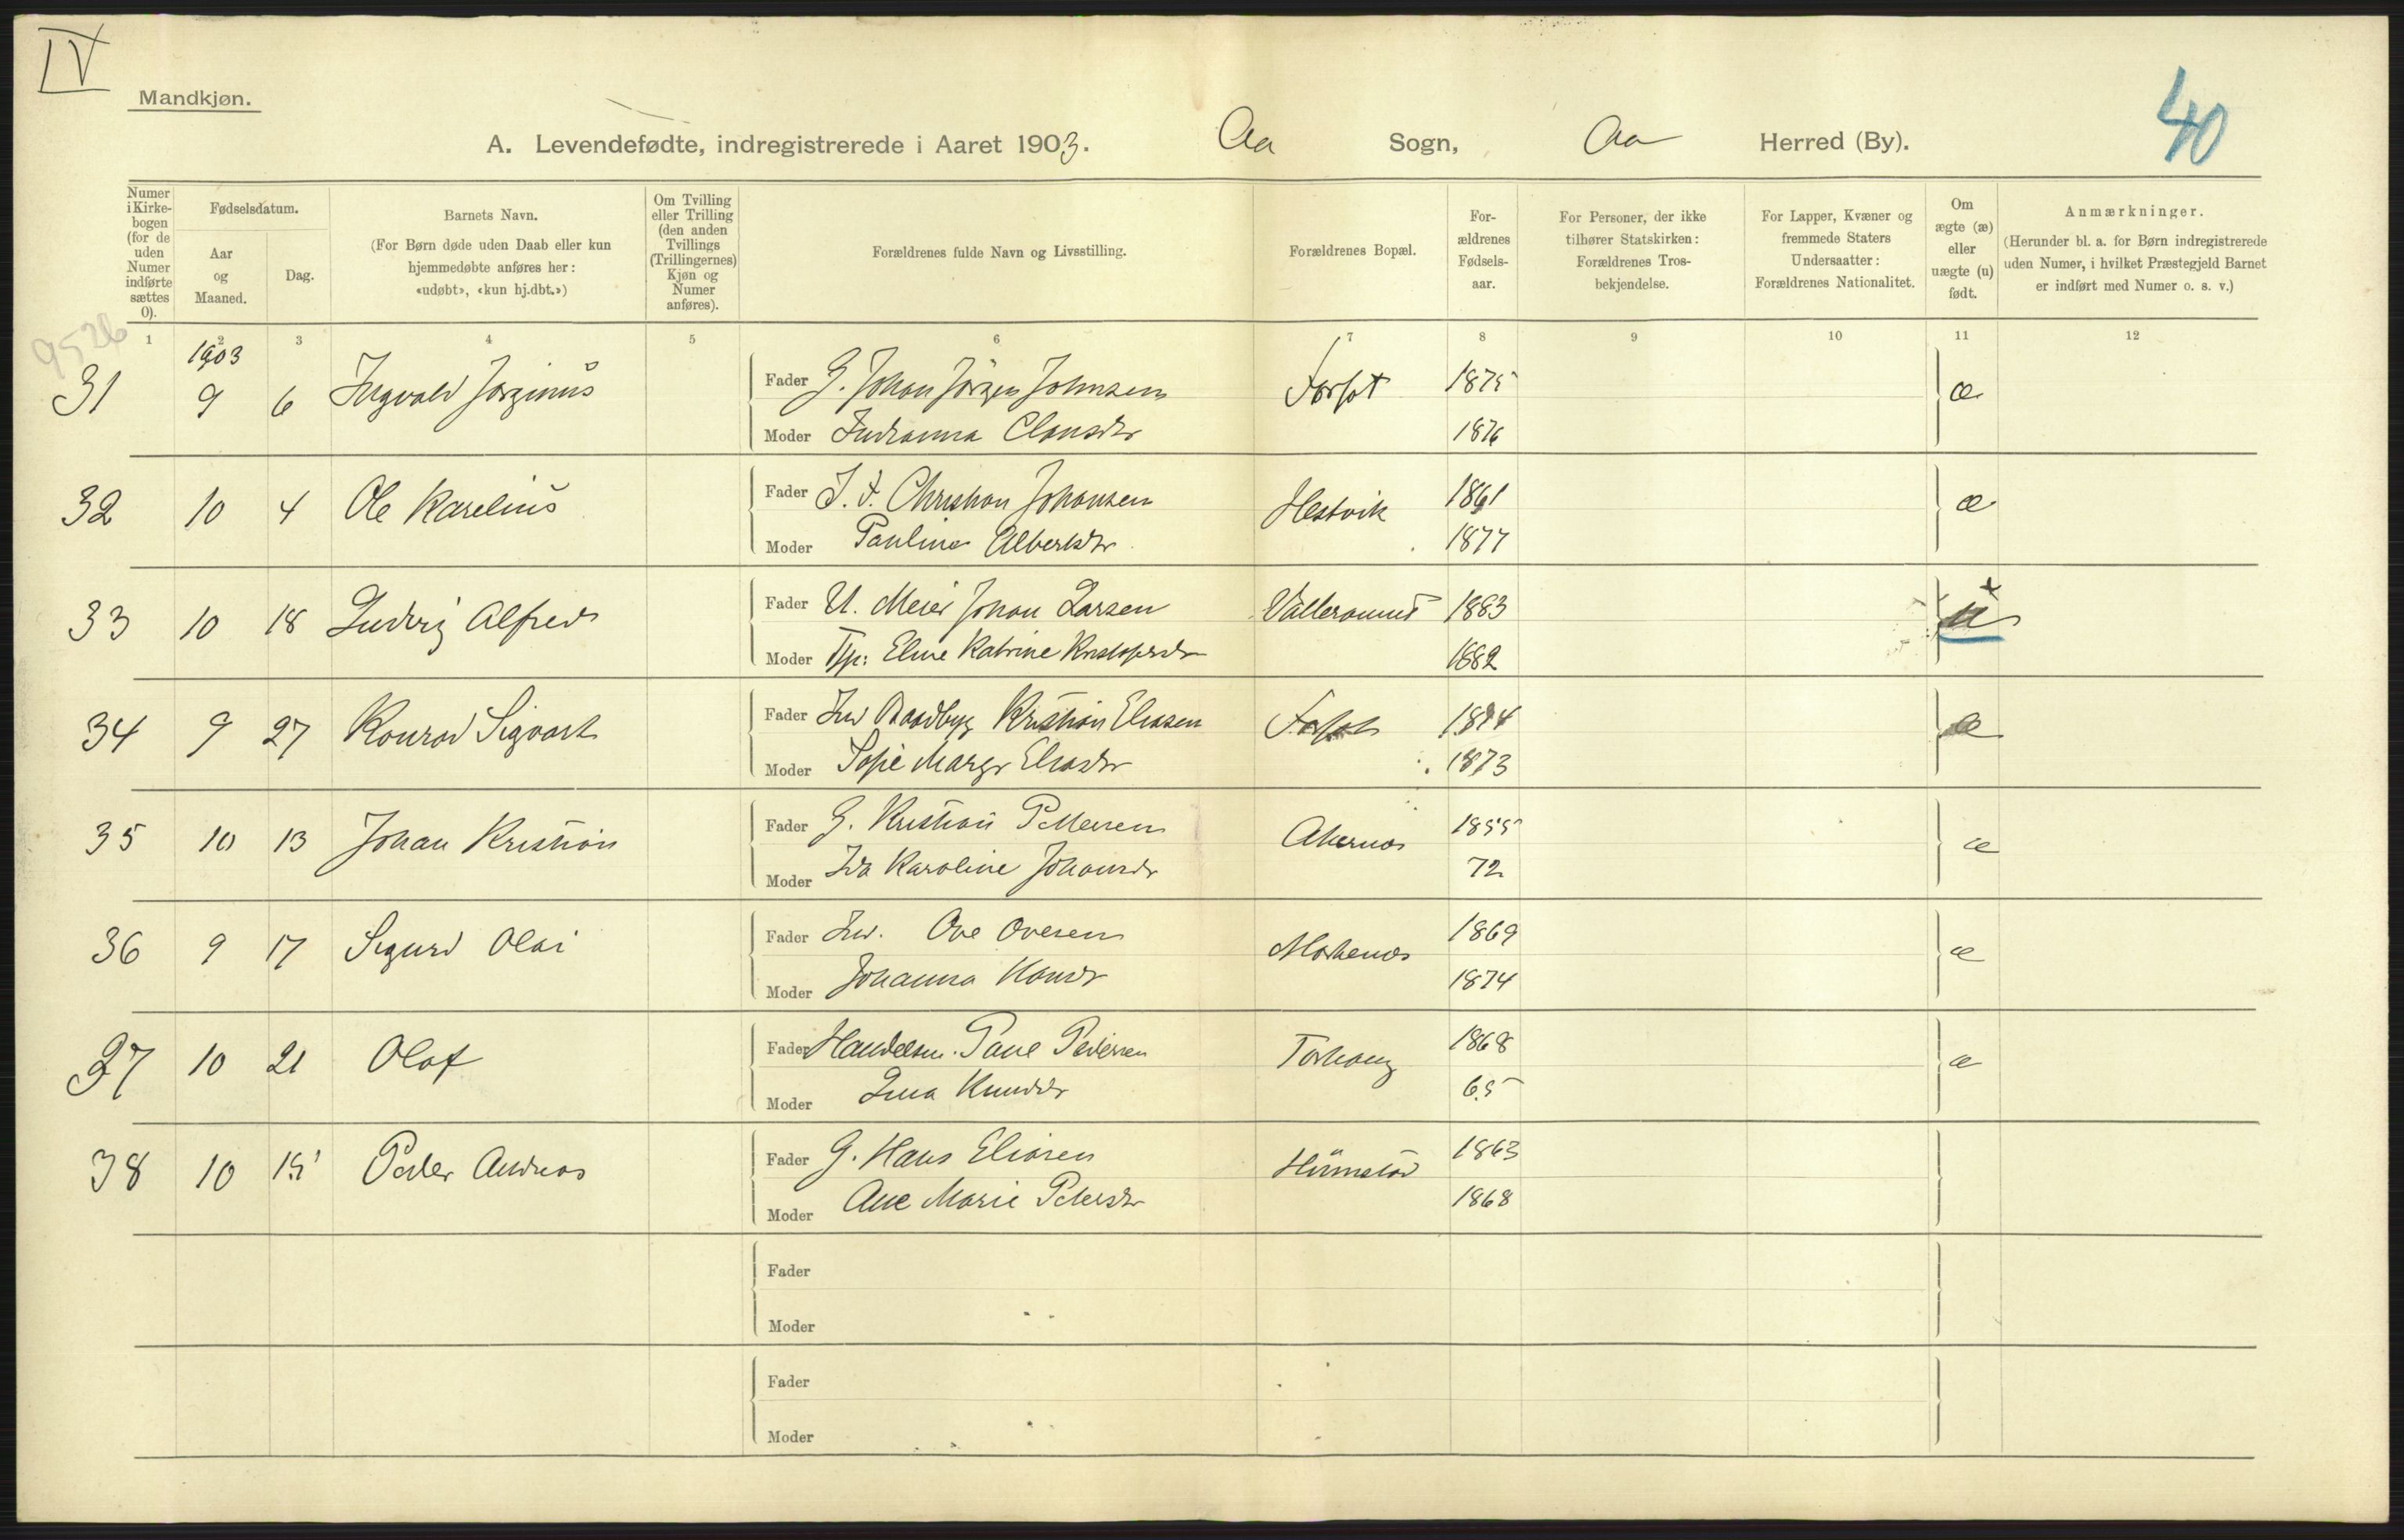 IV
Mandkjøn.
40
A. Levendefødte, indregistrerede i Aaret 1903. Aa Sogn, Aa Herred (By).
Numer i Kirke- bogen (for de uden Numer indførte sættes 0).
Fødselsdatum.
Aar og Maaned.
Dag.
Barnets Navn.
(For Børn døde uden Daab eller kun hjemmedøbte anføres her: «udøbt», «kun hj.dbt.»)
Om Tvilling eller Trilling (den anden Tvillings (Trillingernes) Kjøn og Numer anføres).
Forældrenes fulde Navn og Livsstilling.
Forældrenes Bopæl.
For- ældrenes Fødsels- aar.
For Personer, der ikke tilhører Statskirken: Forældrenes Tros- bekjendelse.
For Lapper, Kvæner og fremmede Staters Undersaatter: Forældrenes Nationalitet.
Om ægte (æ) eller uægte (u) født.
Anmærkninger.
(Herunder bl. a. for Børn indregistrerede uden Numer, i hvilket Præstegjeld Barnet er indført med Numer o. s. v.)
1 2 3 4 5 6 7 8 9 10 11 12
9526
1903
31 9 6 Ingvald Jørginus Fader G. Johan Jörgen Johnsen 1875 æ
Moder Indianna Clausdtr 1876
32 10 4 Ole Karelius Fader I. F. Christian Johansen Hestvik 1861 æ
Moder Pauline Albertsdtr 1877
33 10 18 Ludvig Alfred Fader U. Meier Johan Larsen Valleraune 1883 u
Moder Tjp: Eline Katrine Kristofersdr 1882
34 9 27 Konrad Sigvart Fader Ind Baadbyg Kristian Eliasen 1874 æ
Moder Sofie Margr Eliasdtr 1873
35 10 13 Johan Kristian Fader G. Kristian Pettersen Akernes 1855 æ
Moder Ida Karoline Johansdr 72
36 9 17 Sigurd Olai Fader Ind. Ove Ovesen 1869 æ
Moder Johanna Hansdr 1874
37 10 21 Olaf Fader Handelsm. Paul Pedersen Torhaug 1868 æ
Moder Lina Knudsdr 65
38 10 15 Peder Andreas Fader G. Hans Eliasen Himstad 1863
Moder Ane Marie Petersdtr 1868
Fader
Moder
Fader
Moder